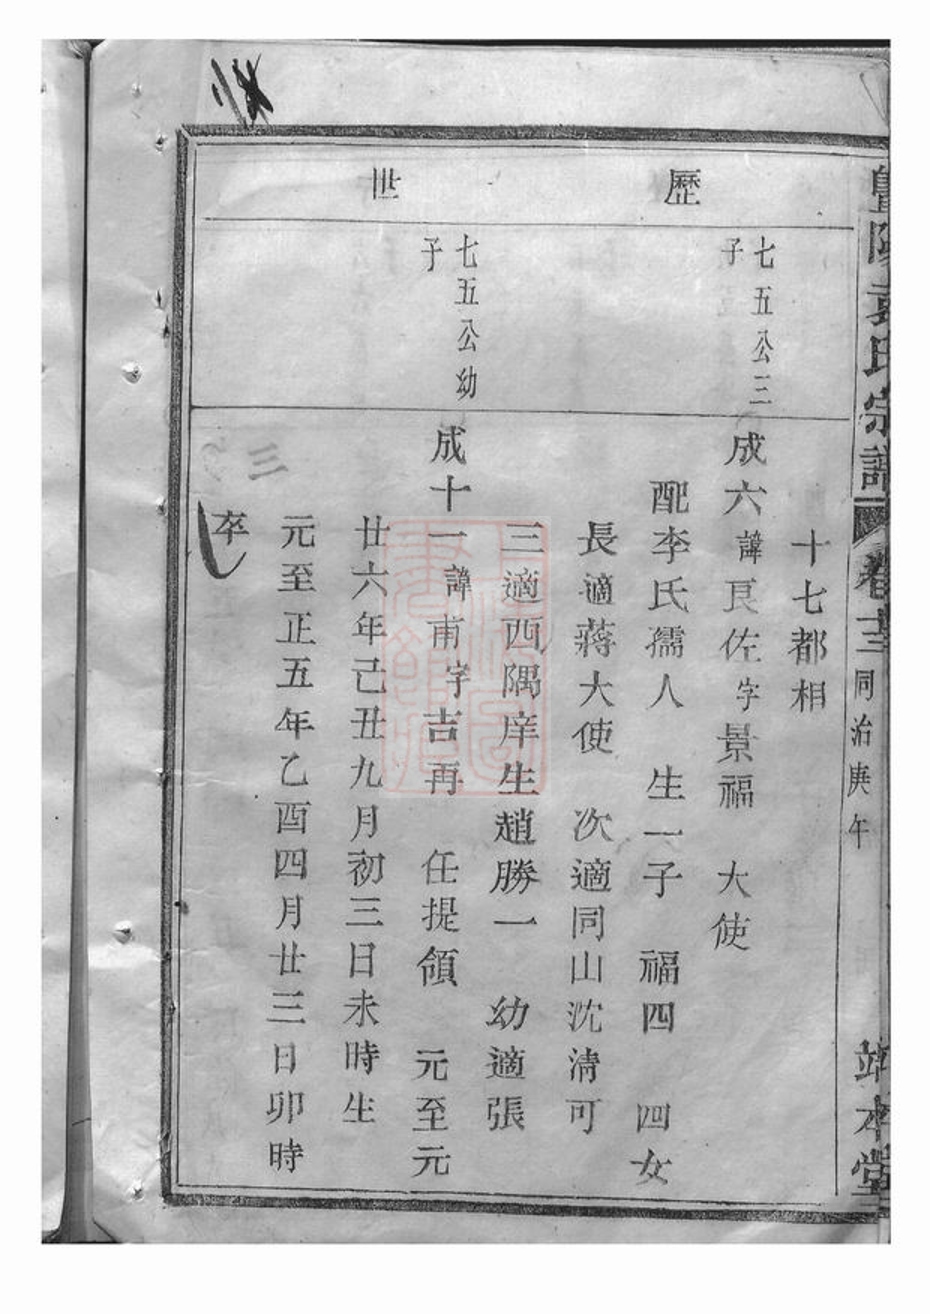 暨陽袁氏宗譜 卷十二 同治庚午 靖本堂
歷世
七五公三
子
七五公幼
子
十七都相
成六諱良佐字景福 大使
配李氏孺人 生一子 福四 四女
長適蔣大使 次適同山沈清可
三適西隅庠生趙勝一 幼適張
成十一諱甫字吉再 任提領 元至元
廿六年己丑九月初三日未時生
元至正五年乙酉四月廿三日卯時
卒